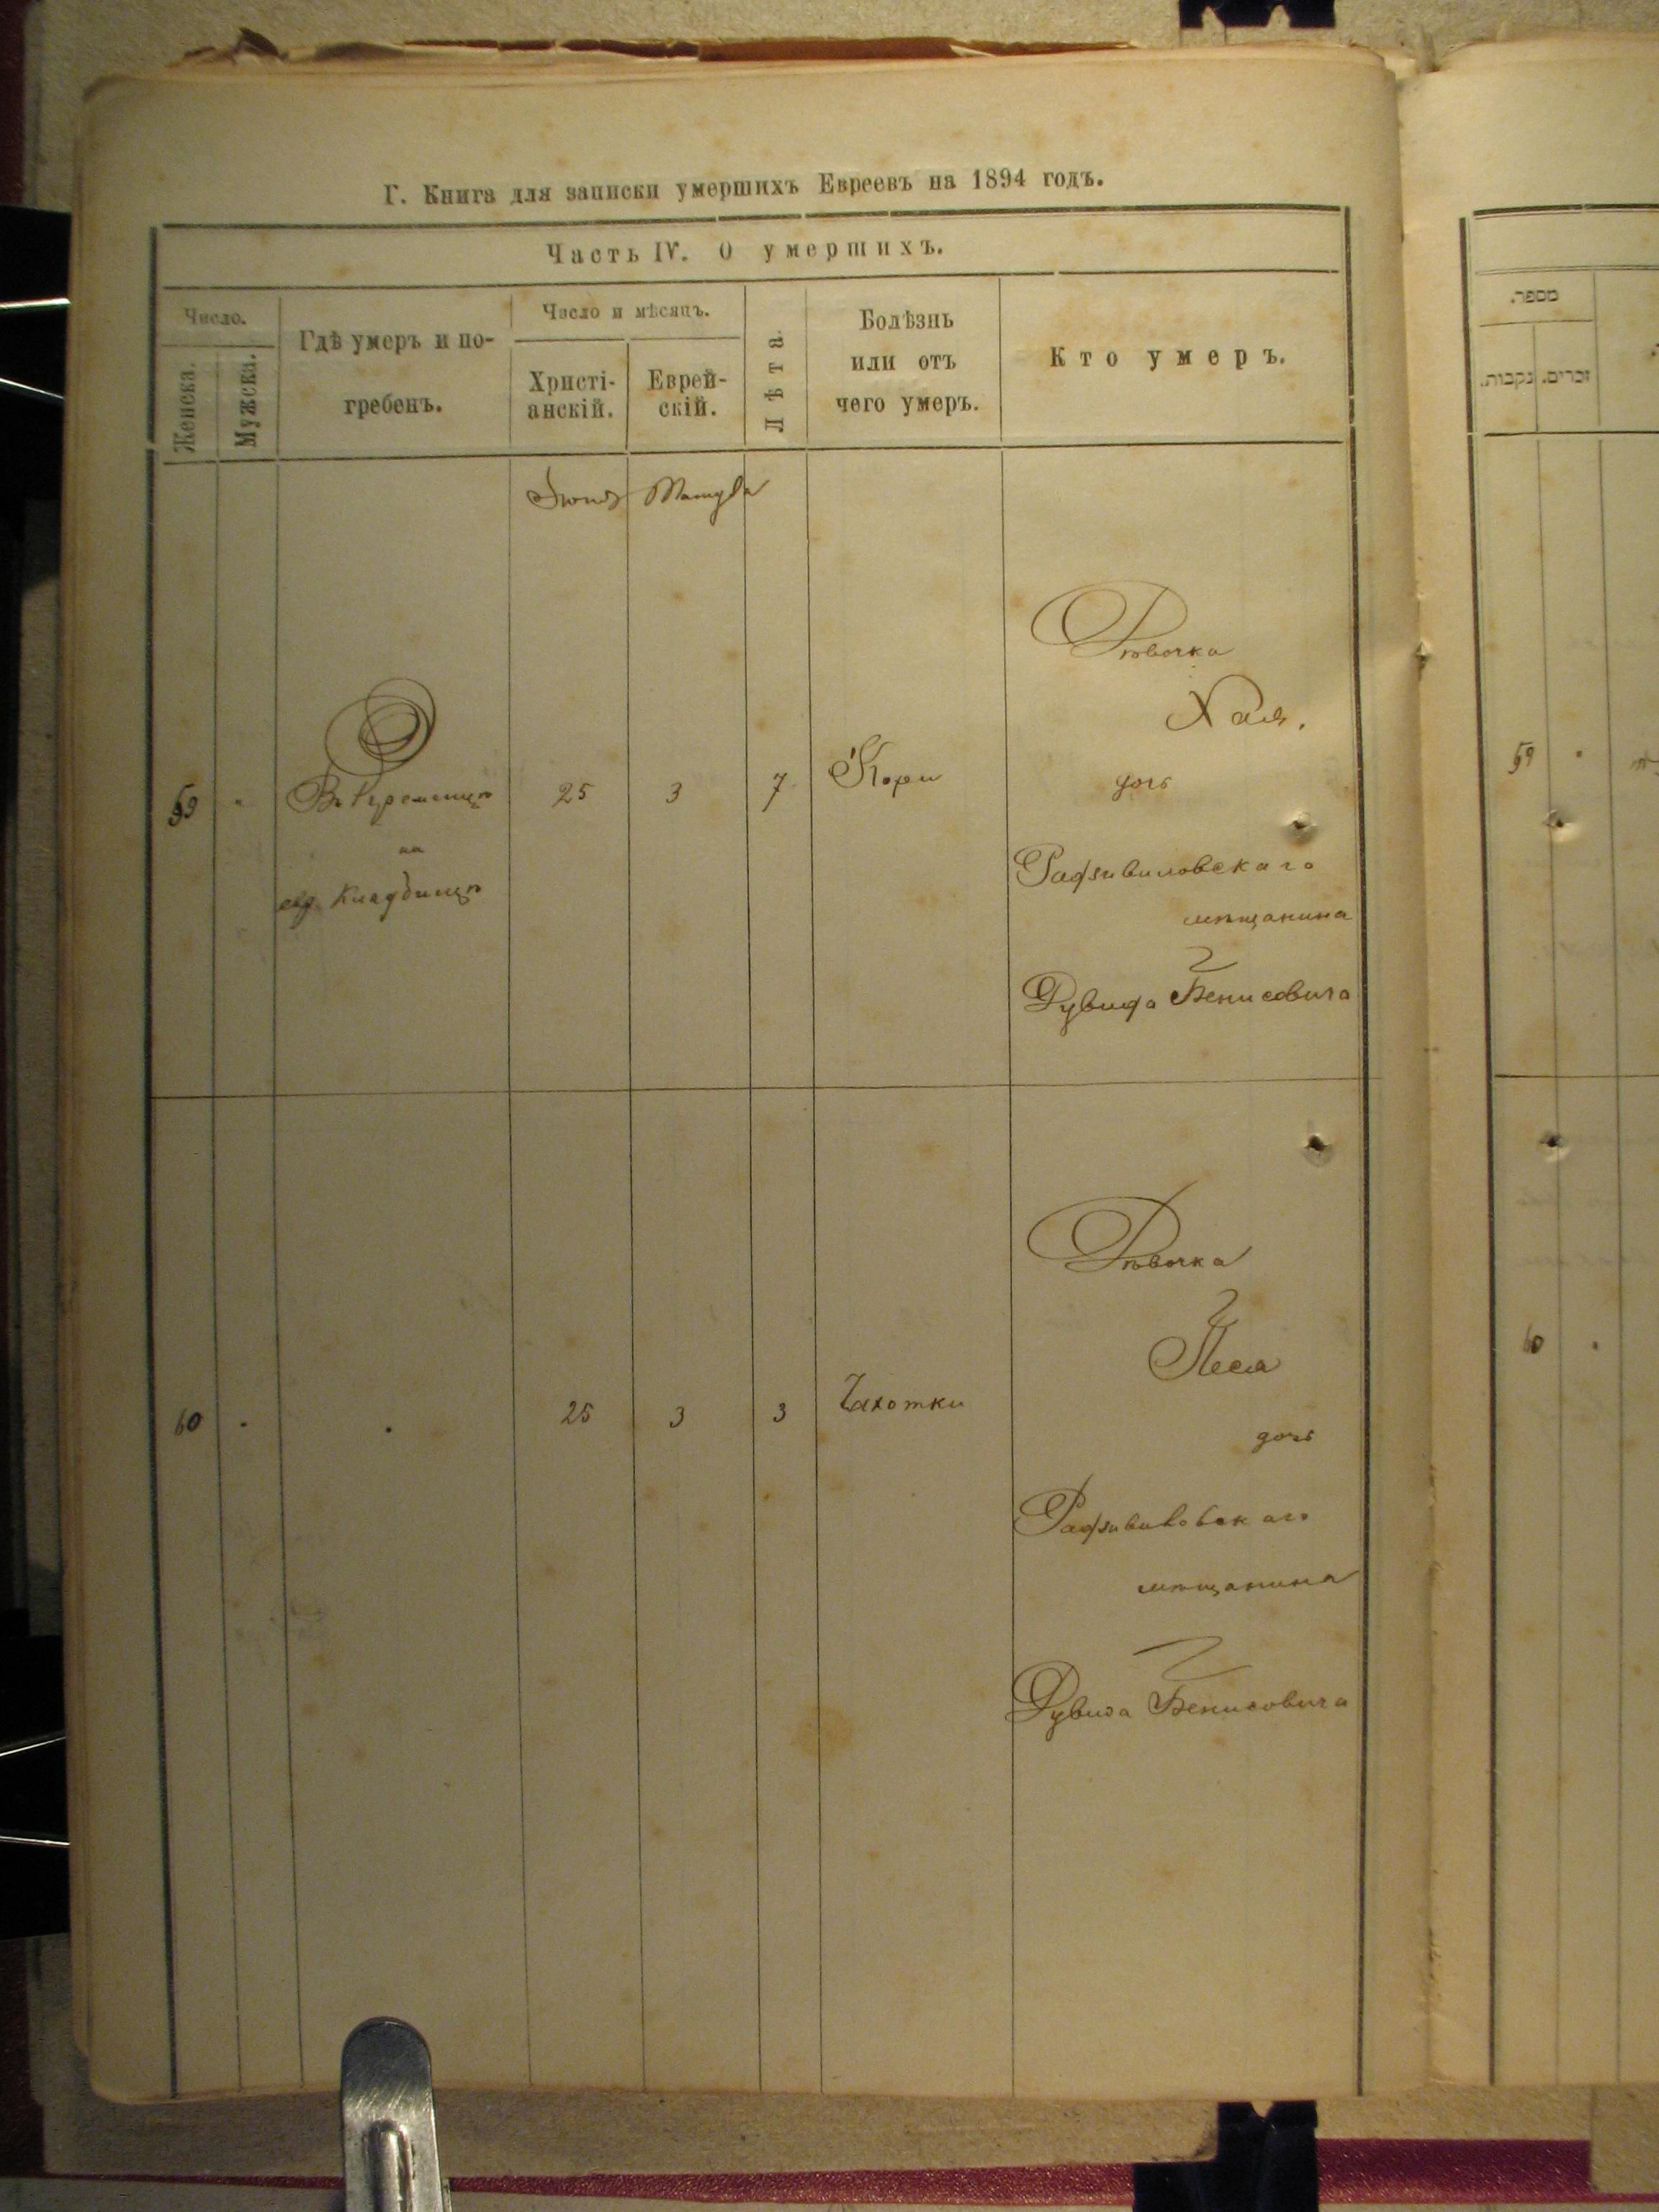 Г. Книга для записки умершихъ Евреевъ на 1894 годъ.
Часть IV. О умершихъ.
Число.
Женска.
Мужска.
Гдѣ умеръ и по-
гребенъ.
Число и мѣсяцъ.
Христі-
анскій.
Еврей-
скій.
Лѣта.
Болѣзнь
или отъ
чего умеръ.
Кто умеръ.
Іюнь
59
"
Въ Кременцѣ
на
евр. Кладбищѣ
25
3
7
Кори
Дѣвочка
Хая,
дочь
Радзивиловскаго
мѣщанина
Рувида Бенисовича
60
25
3
3
Чахотки
Дѣвочка
Песя
дочь
Радзивиловскаго
мѣщанина
Бенисовича
מספר.
זכרים.
נקבות.
59
60